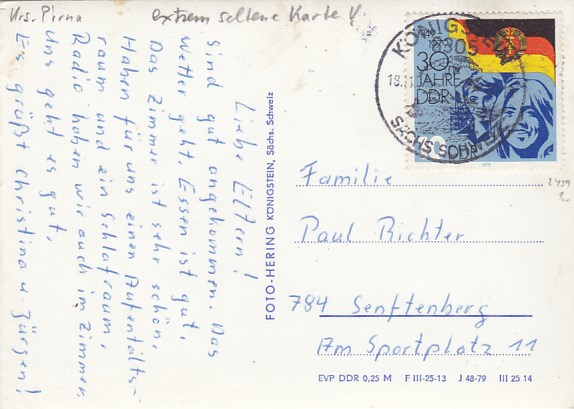 Krs. Pirna
extrem seltene Karte !
Liebe Eltern!
Sind gut angekommen. Das
Wetter geht, Essen ist gut,
Das Zimmer ist sehr schön,
Haben für uns einen Aufentalts-
raum und ein Schlafraum,
Radio haben wir auch im Zimmer
Uns geht es gut,
Es grüßt Christina u. Jürgen!
FOTO-HERING KÖNIGSTEIN, Sächs. Schweiz
KÖNIGS
8305
18.11
SÄCHS SCH
30
JAHRE
DDR
Familie
Paul Richter
784 Senftenberg
Am Sportplatz 11
EVP DDR 0,25 M F III-25-13 J 48-79 III 25 14